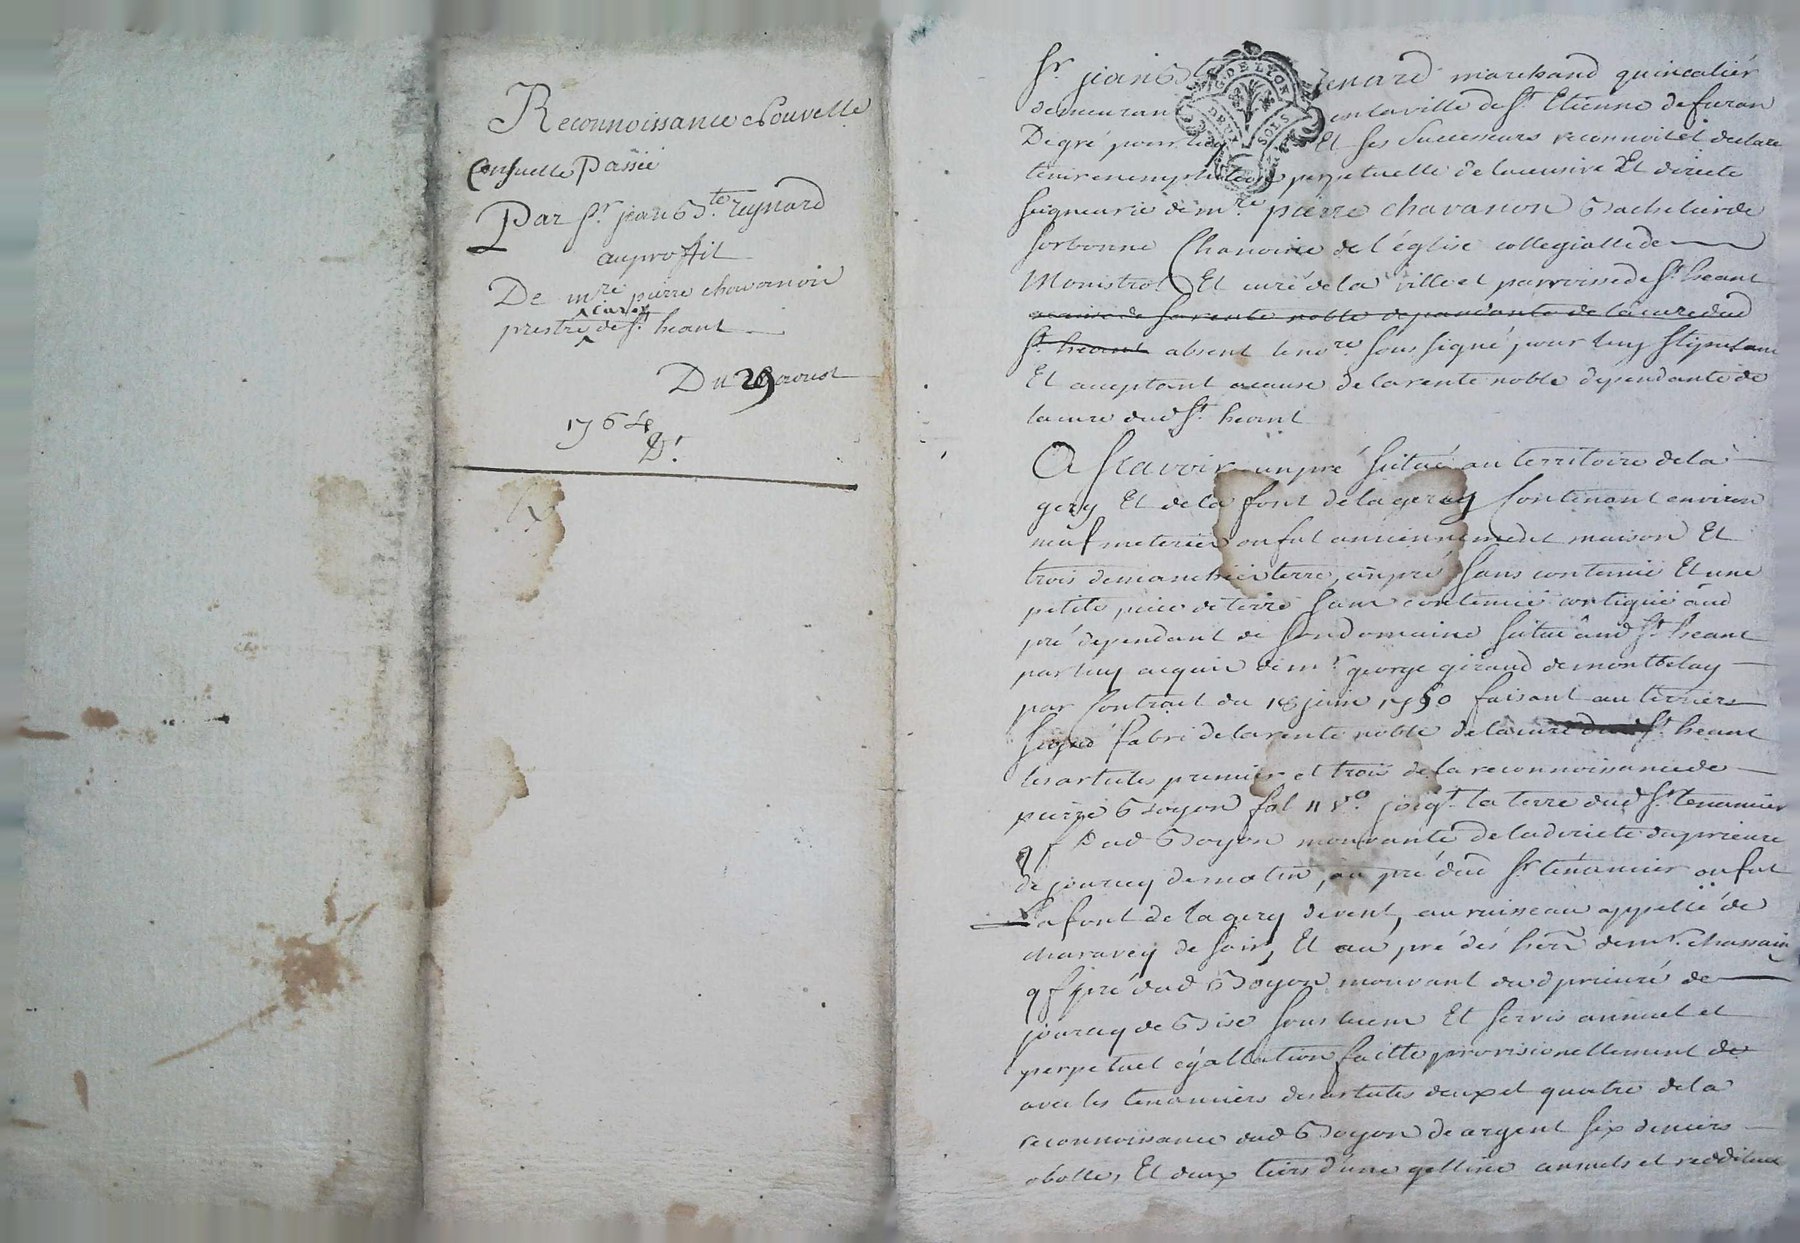 Reconnoissance Nouvelle
Censuelle Passée
Par Sr. jean Bte. reynard
au proffit
De mre pierre chavanon
curé
prestre de St. heant
Du 29 aoust
1764
D!
G. DE LYON
DEUX SOLS
Sr jean B reynard marchand quincalier
demeurant en la ville de St. Etienne de furan
De gré pour luy Et ses Successeurs reconnoit et declare
tenir en emphiteose perpetuelle de la censive Et directe
seigneurie de mre. pierre chavanon Bachelier de
sorbonne Chanoine de l'église collegialle de
Monistrol Et curé de la ville et parroisse de St. heant
a cause de sa rente noble dependante de la cure dud
St. heant absent le nore. Soussigné pour luy Stipulant
Et acceptant a cause de la rente noble dependante de
la cure dud St. heant
A Scavoir un pré Scitué au territoire de la
gery Et de la font de la gerey Contenant environ
neuf meterées ou fut anciennemedt maison Et
trois demanchée terre, un pré Sans contenue Et une
petite piece de terre Sans contenue contigue aud
pré dependant de Son domaine Scitué aud St. heant
par luy acquis de mr. george giraud de montbelay
par Contrait du 18 juin 1750 faisant au terrier
Signé fabri de la rente noble de la cure dud St. heant
les articles premier et trois de la reconnoissance de
pierre Boyon fol 11 vo. joigt. la terre dud Sr. tenancier
q f Dud Boyon mouvante de la directe du prieuré
de jourcey de matin, au pré dud Sr. tenancier ou fut
la font de la gery de vent, au ruisseau appellé de
charavey de soir, Et au pré des hers de mr. chassain
q f pré dud Boyon mouvant dud prieuré de
jourcey de Bise Sous le cens Et servis annuel et
perpetuel égallation faitte provisionellement de
avec les tenanciers des articles deux et quatre de la
reconnoissance dud Boyon de argent six deniers
obolle, Et deux tiers d'une gelline annuels et